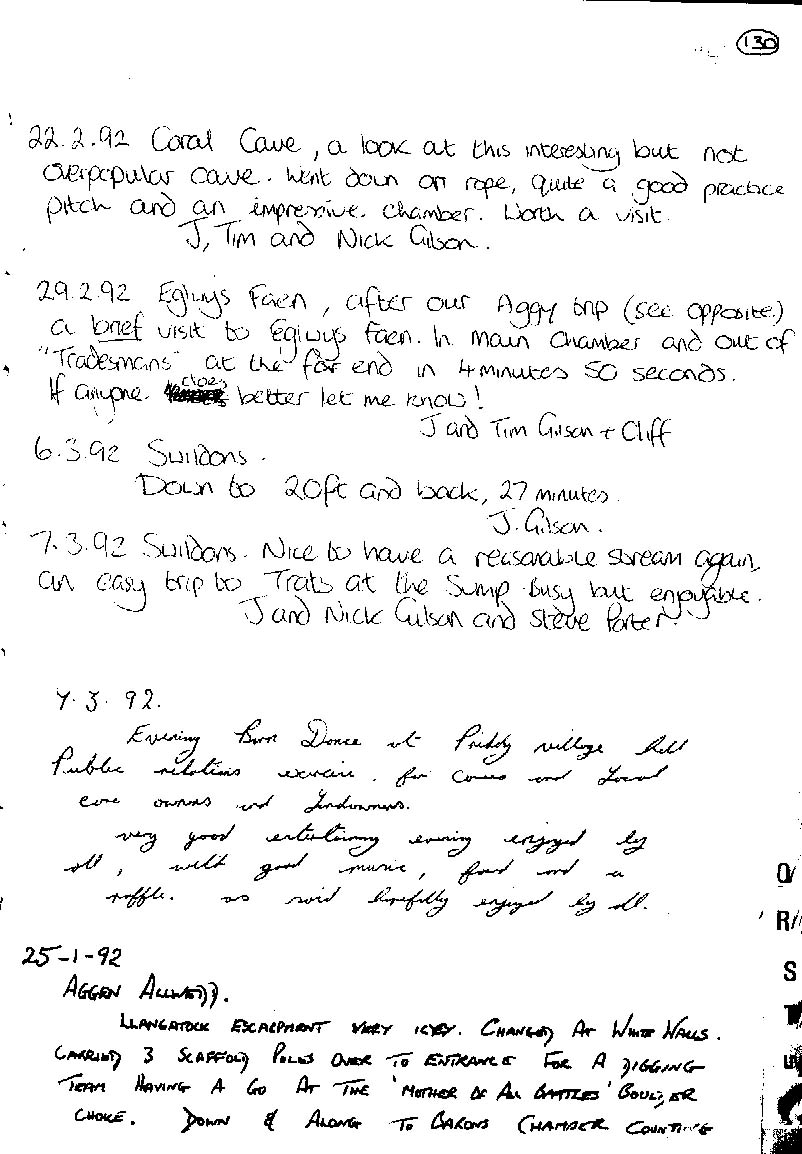 130
22.2.92 Coral Cave, a look at this interesting but not
overpopular cave. Went down on rope, quite a good practice
pitch and an impressive chamber. Worth a visit.
J, Tim and Nick Gilson.
29.2.92 Eglwys Faen, after our Aggy trip (see opposite)
a brief visit to Eglwys Faen. In main chamber and out of
"Tradesmans" at the far end in 4 minutes 50 seconds.
If anyone does better let me know!
J and Tim Gilson + Cliff
6.3.92 Swildons.
Down to 20ft and back, 27 minutes.
J. Gilson.
7.3.92 Swildons. Nice to have a reasonable stream again,
an easy trip to Trats at the Sump. Busy but enjoyable.
J and Nick Gilson and Steve Porter.
7.3.92.
Evening Barn Dance at Priddy village Hall
Public relations exercise, for Cavers and Local
cave owners and Landowners.
very good entertaining evening enjoyed by
all, with good music, food and a
raffle. as said hopefully enjoyed by all.
25-1-92
AGGEN ALLWEDD.
LLANGATOCK ESCARPMENT VERY ICEY. CHANGED AT WHITE WALLS.
CARRIED 3 SCAFFOLD POLES OVER TO ENTRANCE FOR A DIGGING
TEAM HAVING A GO AT THE 'MOTHER OF ALL BATTLES' BOULDER
CHOKE. DOWN & ALONG TO BARONS CHAMBER COUNTING